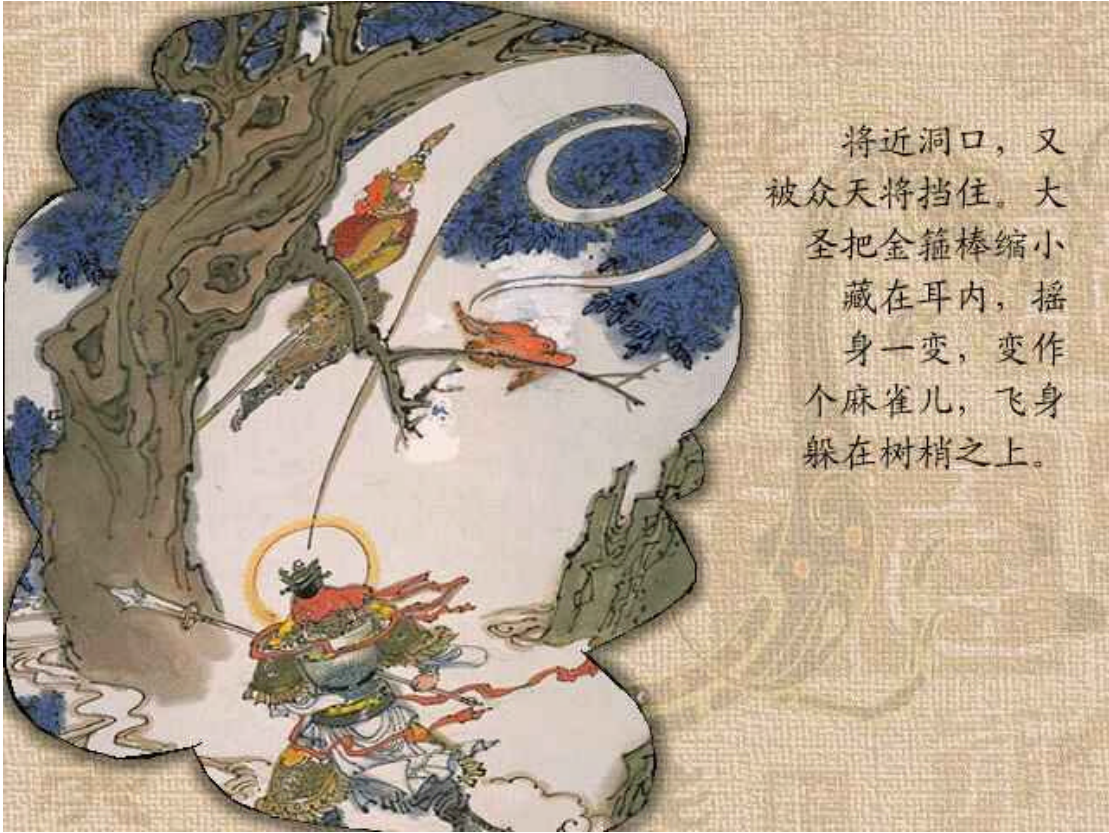 将近洞口，又
被众天将挡住。大
圣把金箍棒缩小
藏在耳内，摇
身一变，变作
个麻雀儿，飞身
躲在树梢之上。